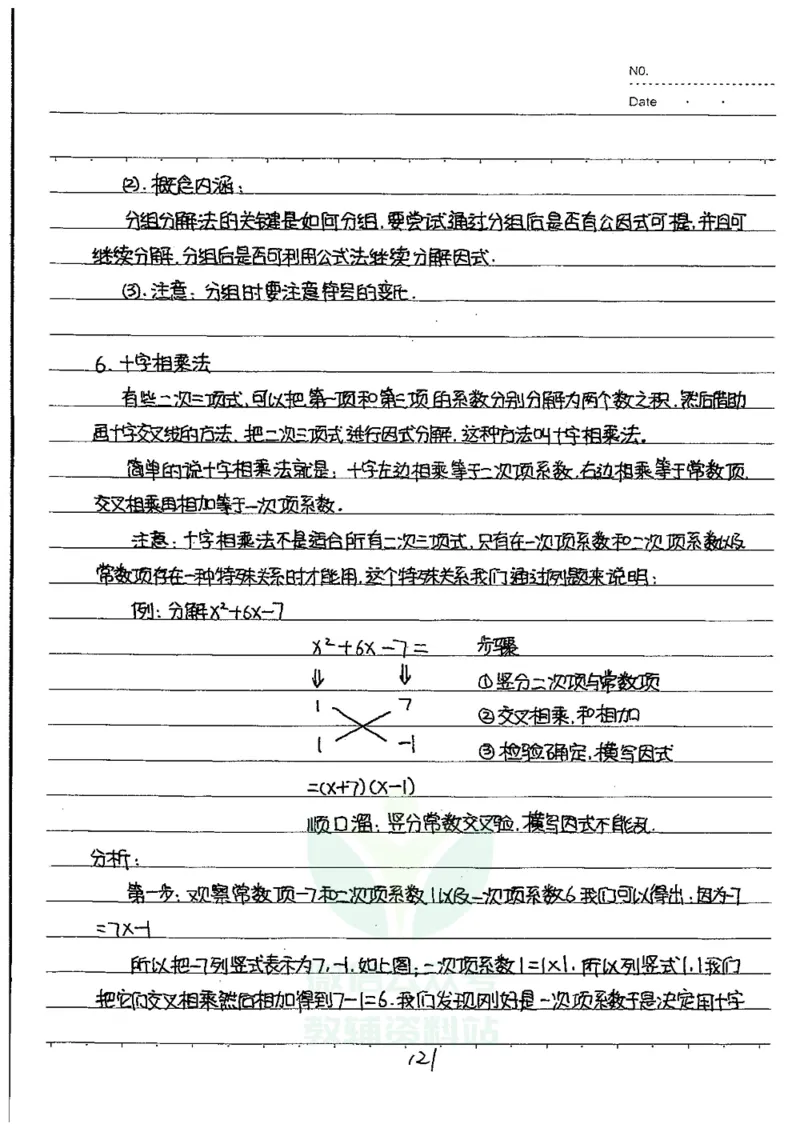 NO.
Date
(2).概念内涵:
分组分解法的关键是如何分组,要尝试通过分组后是否有公因式可提,并且可
继续分解,分组后是否可利用公式法继续分解因式.
(3).注意:分组时要注意符号的变化.
6.十字相乘法
有些二次三项式,可以把第一项和第三项的系数分别分解为两个数之积,然后借助
画十字交叉线的方法,把二次三项式进行因式分解,这种方法叫十字相乘法。
简单的说十字相乘法就是:十字左边相乘等于二次项系数,右边相乘等于常数项,
交叉相乘再相加等于一次项系数.
注意:十字相乘法不是适合所有二次三项式,只有在一次项系数和二次项系数以及
常数项存在一种特殊关系时才能用,这个特殊关系我们通过例题来说明:
例:分解x²+6x-7
x²+6x-7= 步骤
⇓ ⇓ ①竖分二次项与常数项
1 7 ②交叉相乘,和相加
1 -1 ③检验确定,横写因式
=(x+7)(x-1)
顺口溜:竖分常数交叉验,横写因式不能乱.
分析:
第一步:观察常数项-7和二次项系数1以及一次项系数6我们可以得出:因为-7
=7x-1
所以把-7列竖式表示为7,-1,如上图;二次项系数1=1x1,所以列竖式1,1我们
把它们交叉相乘然后相加得到7-1=6.我们发现刚好是一次项系数于是决定用十字
教辅资料站
121